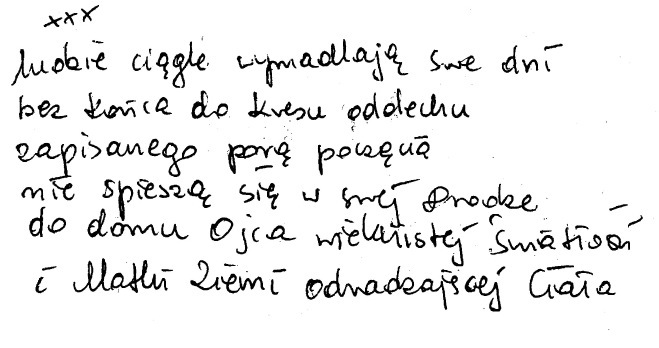 xxx
ludzie ciągle wymadlają swe dni
bez końca do kresu oddechu
zapisanego porą poczęcia
nie spieszą się w swej drodze
do domu Ojca wiekuistej Światłości
i Matki Ziemi odradzającej Ciała